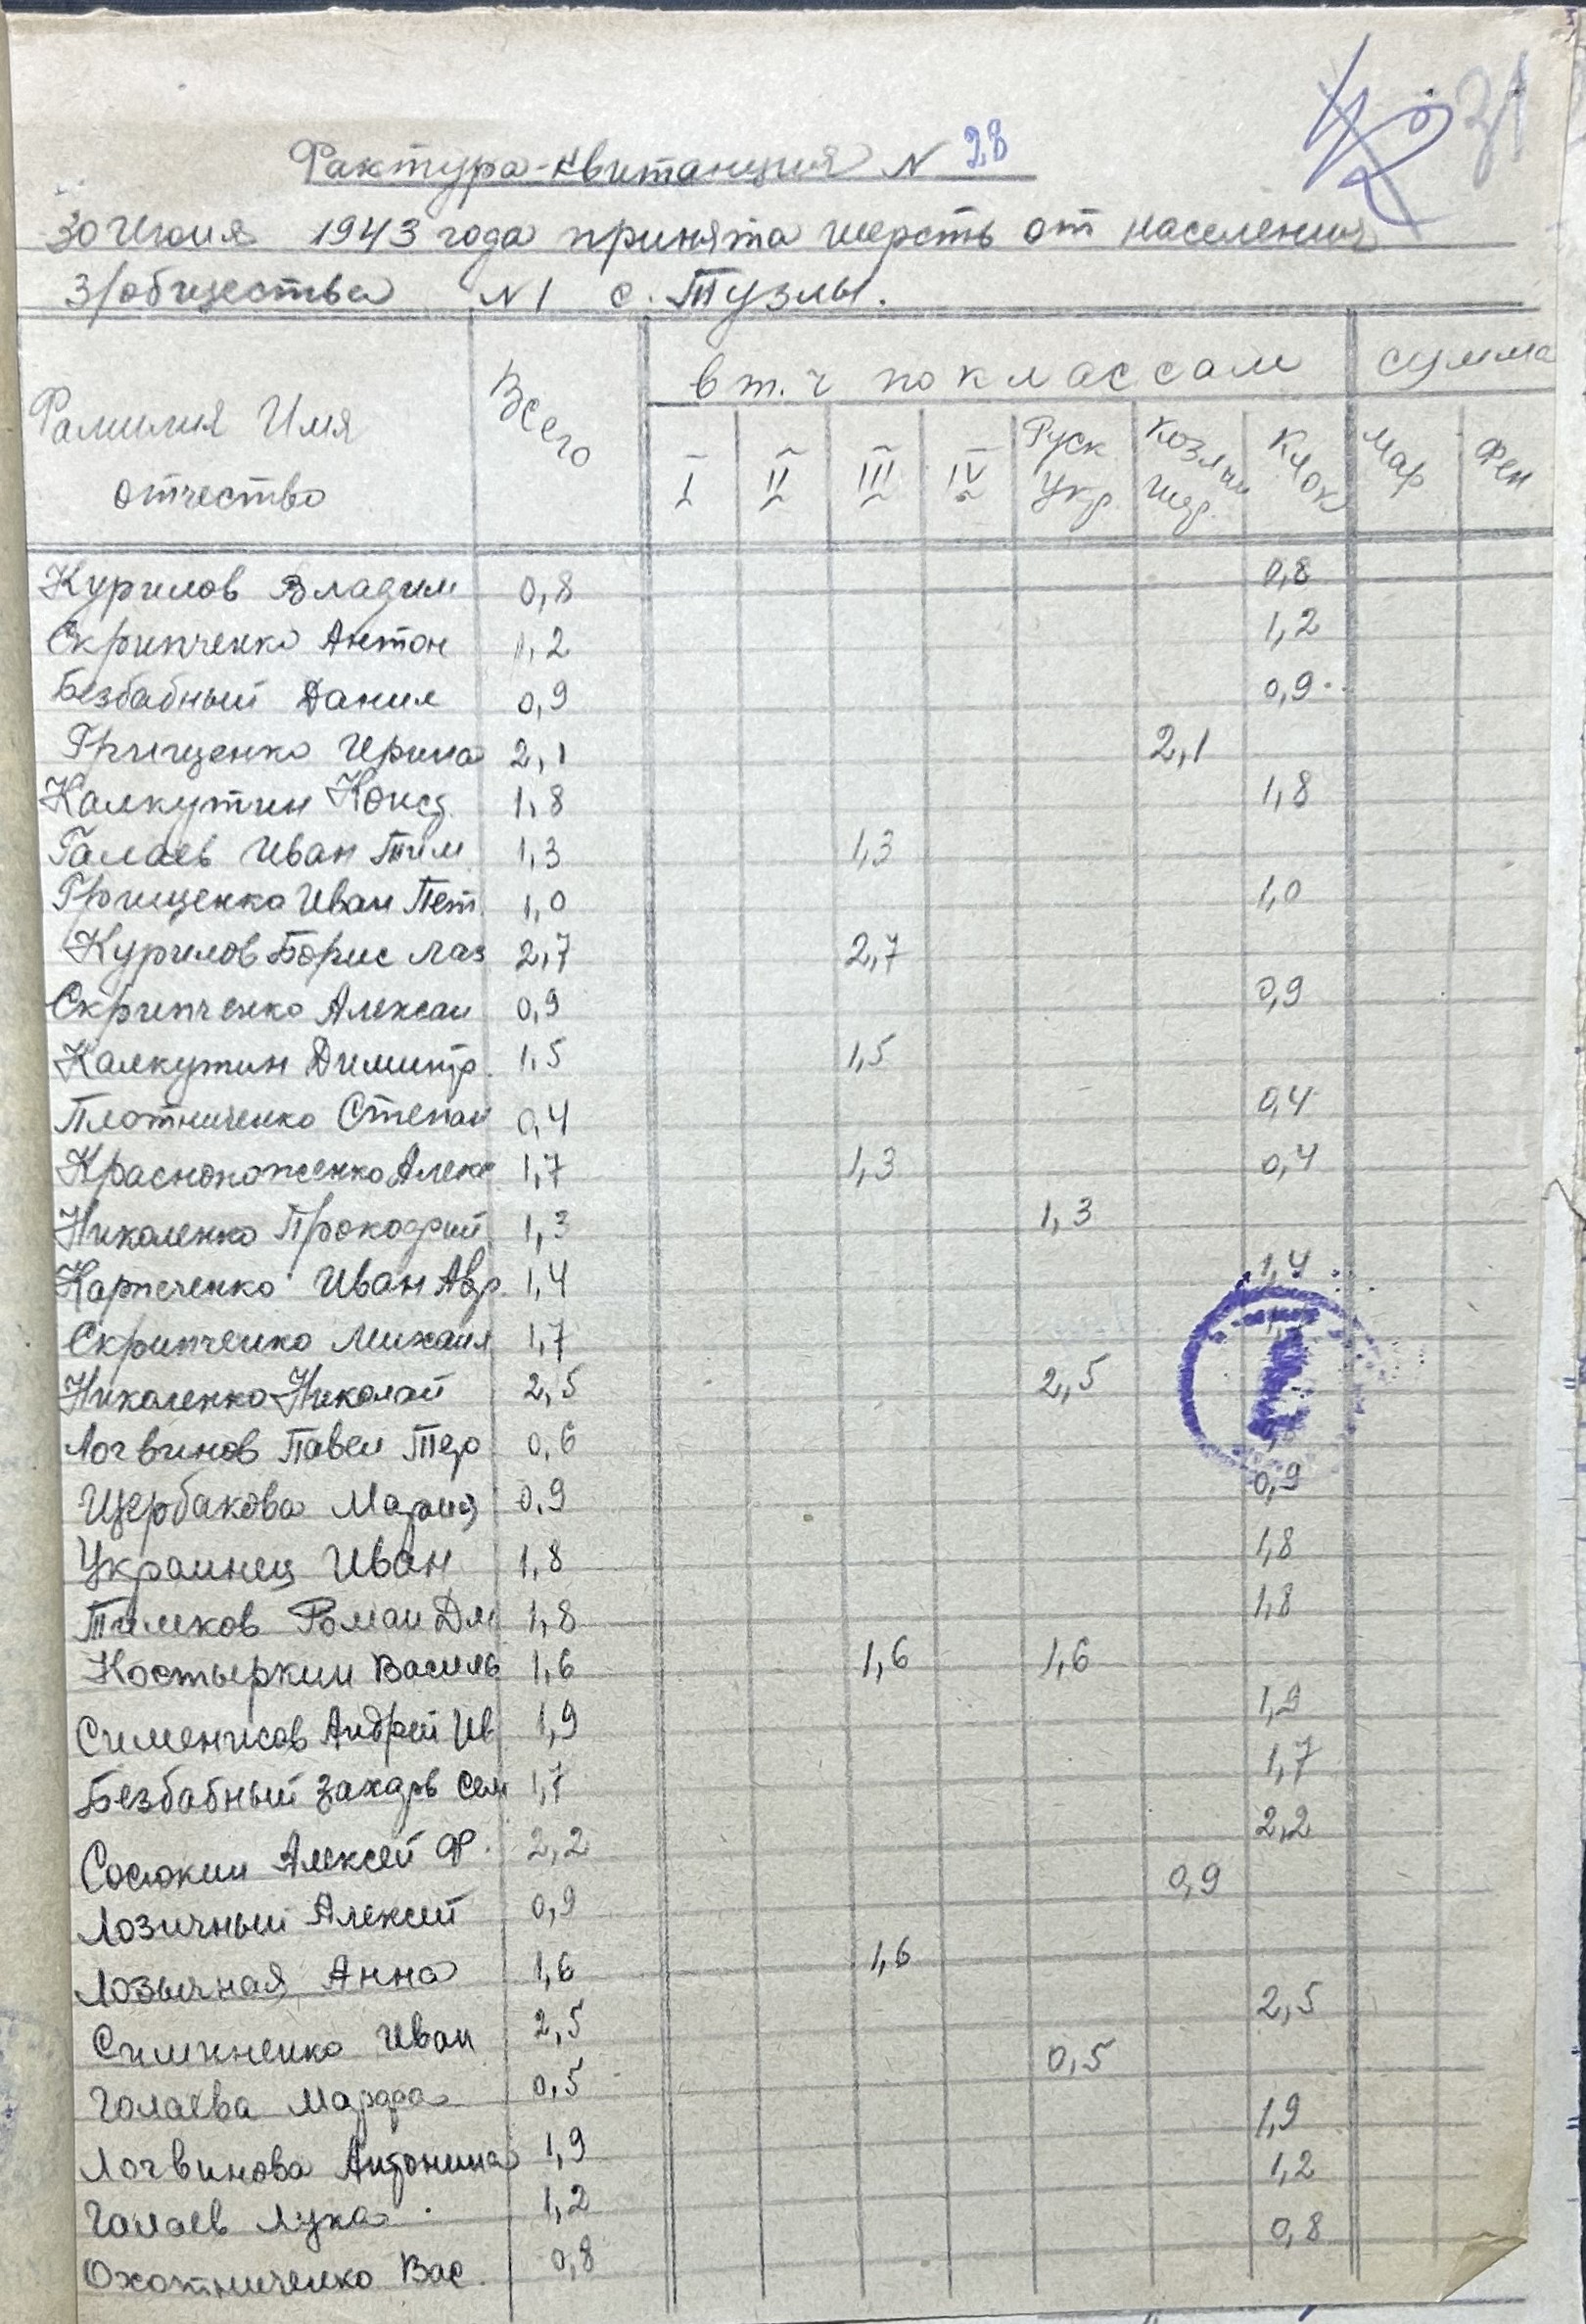 31
Фактура-квитанция N 28
30 Июня 1943 года принята шерсть от населения
З/общества N1 с. Тузлы.
Фамилия Имя отчество Всего в т.ч по классам сумма
I II III IV Руск Укр. Козлин шер. Клок Мар Фен
Курилов Владим 0,8 0,8
Скрипченко Антон 1,2 1,2
Безбабный Данил 0,9 0,9
Грищенко Ирина 2,1 2,1
Калкутин Конст. 1,8 1,8
Галаев Иван Тим 1,3 1,3
Грищенко Иван Пет. 1,0 1,0
Курилов Борис Лаз 2,7 2,7
Скрипченко Алексан 0,9 0,9
Калкутин Димитр. 1,5 1,5
Плотниченко Степан 0,4 0,4
Красноноженко Алекс 1,7 1,3 0,4
Николенко Прокофий 1,3 1,3
Карпеченко Иван 1,4 1,4
Скрипченко Михаил 1,7
Николенко Николай 2,5 2,5
Логвинов Павел 0,6
Щербакова Мария 0,9 0,9
Украинец Иван 1,8 1,8
Тимков Роман Дм 1,8 1,8
Костыркин Василь 1,6 1,6 1,6
Сименисов Андрей Ив 1,9 1,9
Безбабный Захарь Сем 1,7 1,7
Сосюкин Алексей Ф. 2,2 2,2
Лозичный Алексей 0,9 0,9
Лозычная Анна 1,6 1,6
Симиненко Иван 2,5 2,5
Голаева Марфа 0,5 0,5
Логвинова Антонина 1,9 1,9
Голаев Лука 1,2 1,2
Охотниченко Вас. 0,8 0,8